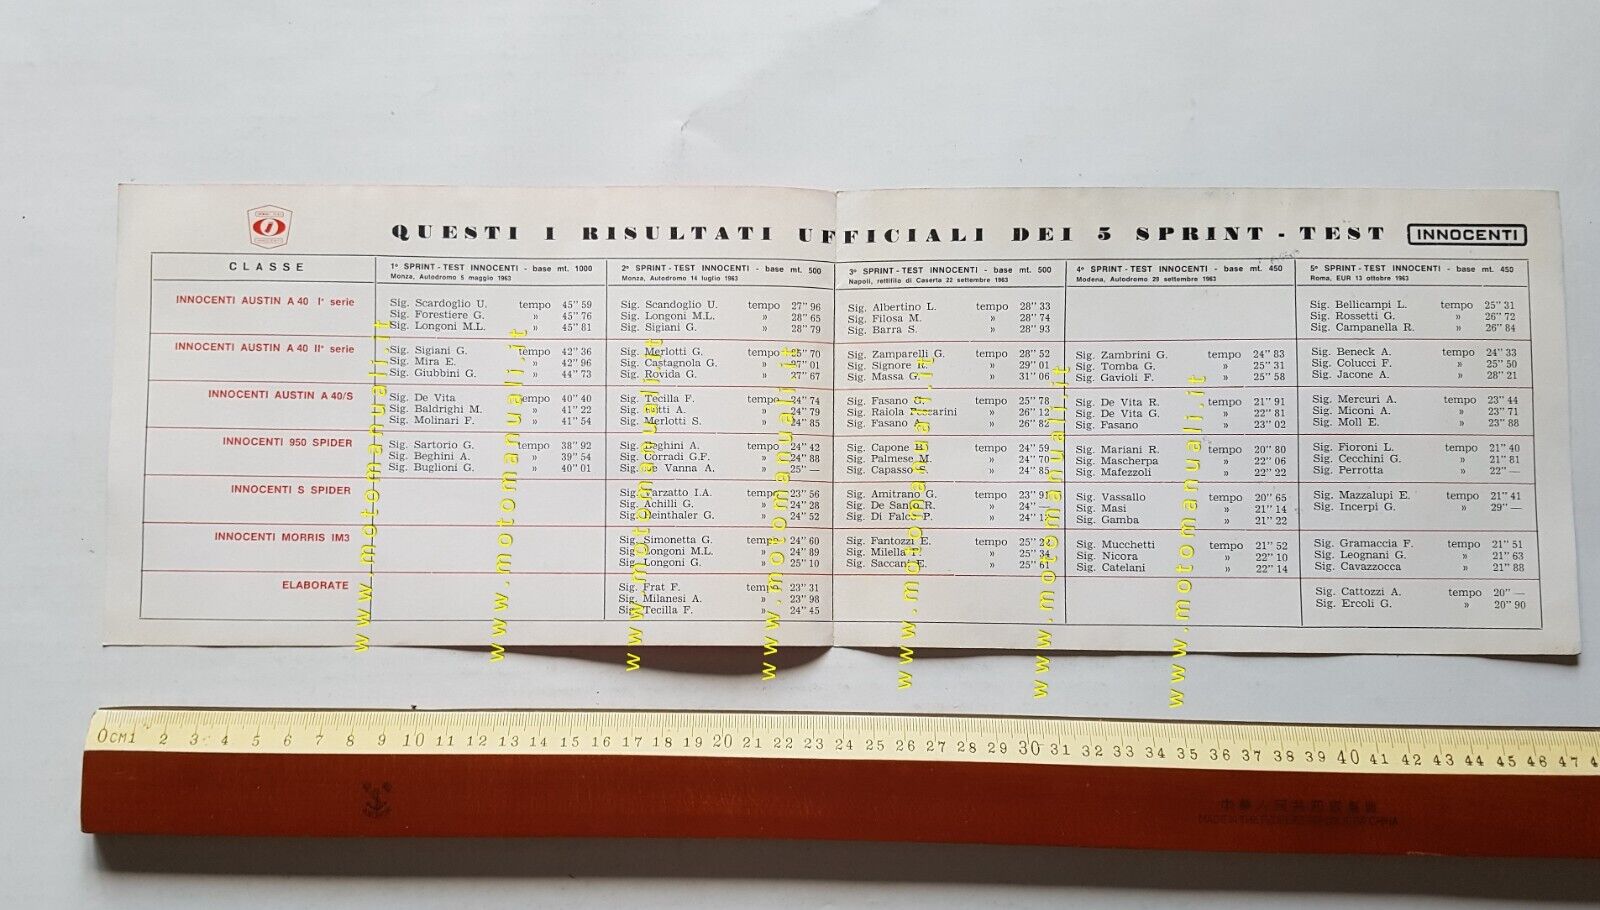 QUESTI I RISULTATI UFFICIALI DEI 5 SPRINT - TEST INNOCENTI
CLASSE
1° SPRINT - TEST INNOCENTI - base mt. 1000
Monza, Autodromo 5 maggio 1963
2° SPRINT - TEST INNOCENTI - base mt. 500
Monza, Autodromo 14 luglio 1963
3° SPRINT - TEST INNOCENTI - base mt. 500
Napoli, rettifilo di Caserta 22 settembre 1963
4° SPRINT - TEST INNOCENTI - base mt. 450
Modena, Autodromo 29 settembre 1963
5° SPRINT - TEST INNOCENTI - base mt. 450
Roma, EUR 13 ottobre 1963
INNOCENTI AUSTIN A 40 Iª serie
Sig. Scardoglio U. tempo 45" 59
Sig. Forestiere G. » 45" 76
Sig. Longoni M.L. » 45" 81
Sig. Scandoglio U. tempo 27" 96
Sig. Longoni M.L. » 28" 65
Sig. Sigiani G. » 28" 79
Sig. Albertino L. tempo 28" 33
Sig. Filosa M. » 28" 74
Sig. Barra S. » 28" 93
Sig. Bellicampi L. tempo 25" 31
Sig. Rossetti G. » 26" 72
Sig. Campanella R. » 26" 84
INNOCENTI AUSTIN A 40 IIª serie
Sig. Sigiani G. tempo 42" 36
Sig. Mira E. » 42" 96
Sig. Giubbini G. » 44" 73
Sig. Merlotti G. tempo 25" 70
Sig. Castagnola G. » 27" 01
Sig. Rovida G. » 27" 67
Sig. Zamparelli G. tempo 28" 52
Sig. Signore R. » 29" 01
Sig. Massa G. » 31" 06
Sig. Zambrini G. tempo 24" 83
Sig. Tomba G. » 25" 31
Sig. Gavioli F. » 25" 58
Sig. Beneck A. tempo 24" 33
Sig. Colucci F. » 25" 50
Sig. Jacone A. » 28" 21
INNOCENTI AUSTIN A 40/S
Sig. De Vita tempo 40" 40
Sig. Baldrighi M. » 41" 22
Sig. Molinari F. » 41" 54
Sig. Tecilla F. tempo 24" 74
Sig. A. » 24" 79
Sig. Merlotti S. » 24" 85
Sig. Fasano G. tempo 25" 78
Sig. Raiola » 26" 12
Sig. Fasano A. » 26" 82
Sig. De Vita R. tempo 21" 91
Sig. De Vita G. » 22" 81
Sig. Fasano » 23" 02
Sig. Mercuri A. tempo 23" 44
Sig. Miconi A. » 23" 71
Sig. Moll E. » 23" 88
INNOCENTI 950 SPIDER
Sig. Sartorio G. tempo 38" 92
Sig. Beghini A. » 39" 54
Sig. Buglioni G. » 40" 01
Sig. Beghini A. tempo 24" 42
Sig. Corradi G.F. » 24" 88
Sig. De Vanna A. » 25" —
Sig. Capone tempo 24" 59
Sig. Palmese M. » 24" 70
Sig. Capasso » 24" 85
Sig. Mariani R. tempo 20" 80
Sig. Mascherpa » 22" 06
Sig. Mafezzoli » 22" 22
Sig. Fioroni L. tempo 21" 40
Sig. Cecchini G. » 21" 81
Sig. Perrotta » 22" —
INNOCENTI S SPIDER
Sig. Varzatto I.A. tempo 23" 56
Sig. Achilli G. » 24" 28
Sig. Reinthaler G. » 24" 52
Sig. Amitrano G. tempo 23" 91
Sig. De Santo R. » 24" —
Sig. Di Falco P. » 24"
Sig. Vassallo tempo 20" 65
Sig. Masi » 21" 14
Sig. Gamba » 21" 22
Sig. Mazzalupi E. tempo 21" 41
Sig. Incerpi G. » 29" —
INNOCENTI MORRIS IM3
Sig. Simonetta G. tempo 24" 60
Sig. Longoni M.L. » 24" 89
Sig. Longoni G. » 25" 10
Sig. Fantozzi E. tempo 25"
Sig. Milella » 25" 34
Sig. Saccani E. » 25" 61
Sig. Mucchetti tempo 21" 52
Sig. Nicora » 22" 10
Sig. Catelani » 22" 14
Sig. Gramaccia F. tempo 21" 51
Sig. Leognani G. » 21" 63
Sig. Cavazzocca » 21" 88
ELABORATE
Sig. Frat F. tempo 23" 31
Sig. Milanesi A. » 23" 98
Sig. Tecilla F. » 24" 45
Sig. Cattozzi A. tempo 20" —
Sig. Ercoli G. » 20" 90
www.motomanuali.it
www.motomanuali.it
www.motomanuali.it
www.motomanuali.it
www.motomanuali.it
www.motomanuali.it
www.motomanuali.it
0CM1 2 3 4 5 6 7 8 9 10 11 12 13 14 15 16 17 18 19 20 21 22 23 24 25 26 27 28 29 30 31 32 33 34 35 36 37 38 39 40 41 42 43 44 45 46 47